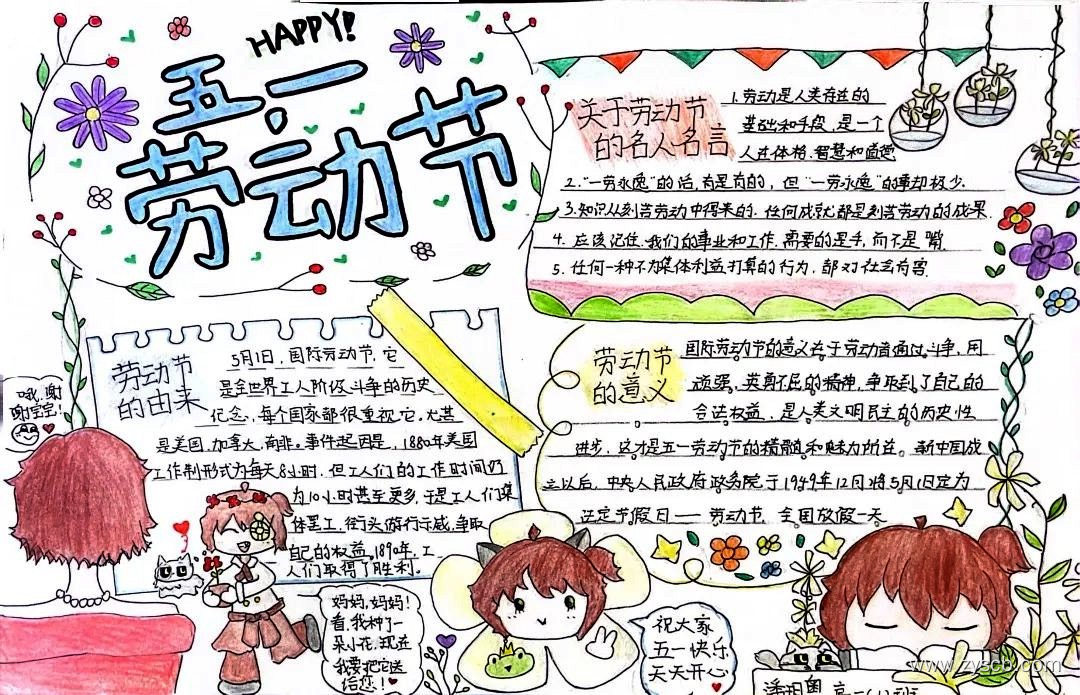 HAPPY!
五,一
劳动节
关于劳动节
的名人名言
1.劳动是人类存在的
基础和手段,是一个
人在体格,智慧和道德
2."一劳永逸"的话,有是有的,但"一劳永逸"的事却极少.
3.知识从刻苦劳动中得来的.任何成就都是刻苦劳动的成果.
4.应该记住.我们的事业和工作.需要的是手,而不是嘴.
5.任何一种不为集体利益打算的行为,都对社会有害.
劳动节
的由来
5月1日,国际劳动节,它
是全世界工人阶级斗争的历史
纪念,每个国家都很重视它,尤其
是美国,加拿大,南非。事件起因是,1880年美国
工作制形式为每天8小时,但工人们的工作时间仍
为10小时甚至更多,于是工人们集
体罢工,街头游行示威,争取
自己的权益,1890年,工
人们取得了胜利.
劳动节
的意义
国际劳动节的意义在于劳动者通过斗争,用
顽强,英勇不屈的精神,争取到了自己的
合法权益,是人类文明民主的历史性
进步,这才是五一劳动节的精髓和魅力所在。新中国成
立以后,中央人民政府政务院于1949年12月将5月1日定为
法定节假日——劳动节,全国放假一天
哦,谢
谢宝宝!
妈妈,妈妈!
看,我种了一
朵小花,现在
我要把它送
给您!
祝大家
五一快乐
天天开心
www.zyscb.com